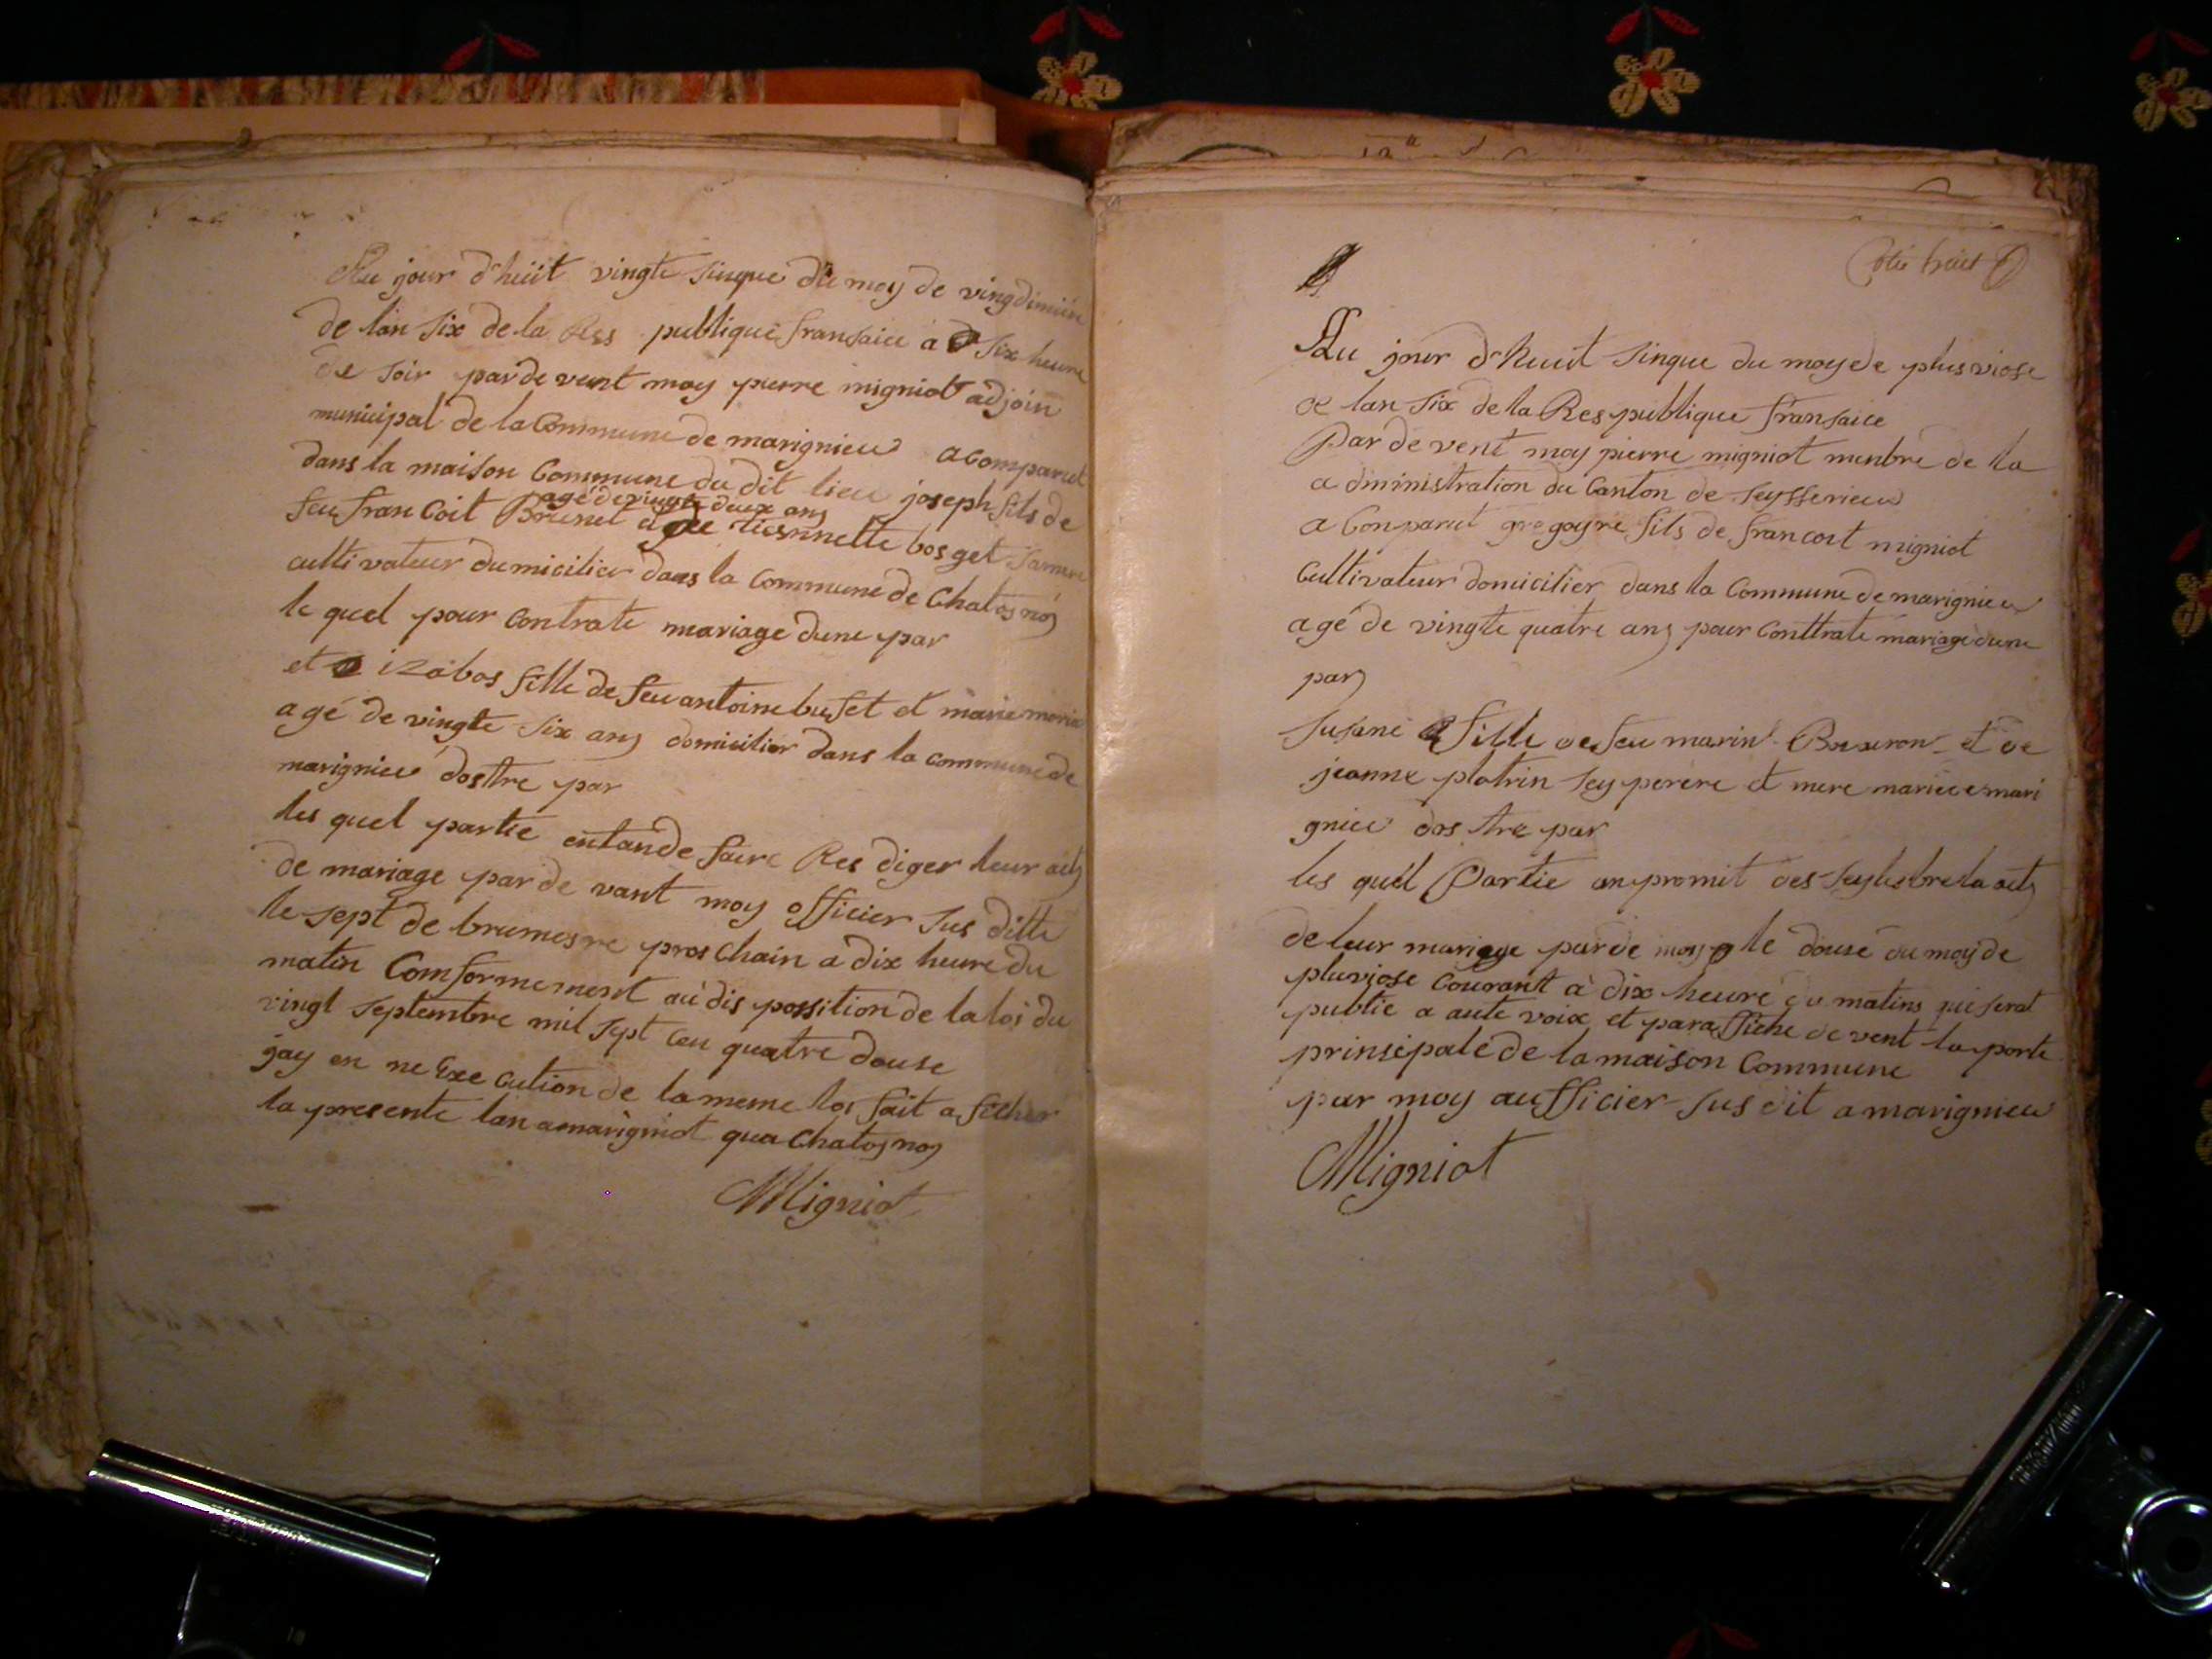 Au jour d'huit vingte sinque du moy de vingdimiére
de lan six de la Res publique fransaice a six heure
de soir par de vent moy pierre migniot adjoin
municipal de la Commune de marignieu acomparut
dans la maison Commune du dit lieu joseph fils de
agé de vingte deux ans
feu francoit Brunet et de tiesnnette bosget sa mere
cultivateur dumicilier dans la Commune de Chatosnos
le quel pour Contrate mariage dune par
et izabos fille de feu antoine buset et marie
agé de vingte six ans domicilier dans la commune de
marignieu dostre par
les quel partie entande faire Res diger leur act
de mariage par de vant moy officier sus ditte
le sept de brumosre pros Chain a dix heure du
matin Comformement au dis possition de la loi du
vingt septembre mil sept cen quatre douse
jay en ne Exe cution de la meme loi fait a ficher
la presente lan a marigniot qua Chatosnos
Migniot
Cotté huict
Au jour d'huit sinque du moy de plusviose
de lan six de la Respublique fransaice
Par de vent moy pierre migniot menbre de la
a dministration du Canton de seysserieu
a Conparut gregoyre fils de francoit migniot
Cultivateur domicilier dans la Commune de marignieu
agé de vingte quatre ans pour Conttrate mariage dune
par
susane fille de feu marin et de
jeanne platrin sey perere et mere mariée e mari
gnieu dos tre par
les quél Partie on promit des seylesbre la act
de leur mariage par de moy le douse du moy de
pluviose Courant à dix heure du matins qui serat
publié a aute voix et par affiche de vent la porte
prinsipale de la maison Commune
par moy aufficier sus dit a marignieu
Migniot